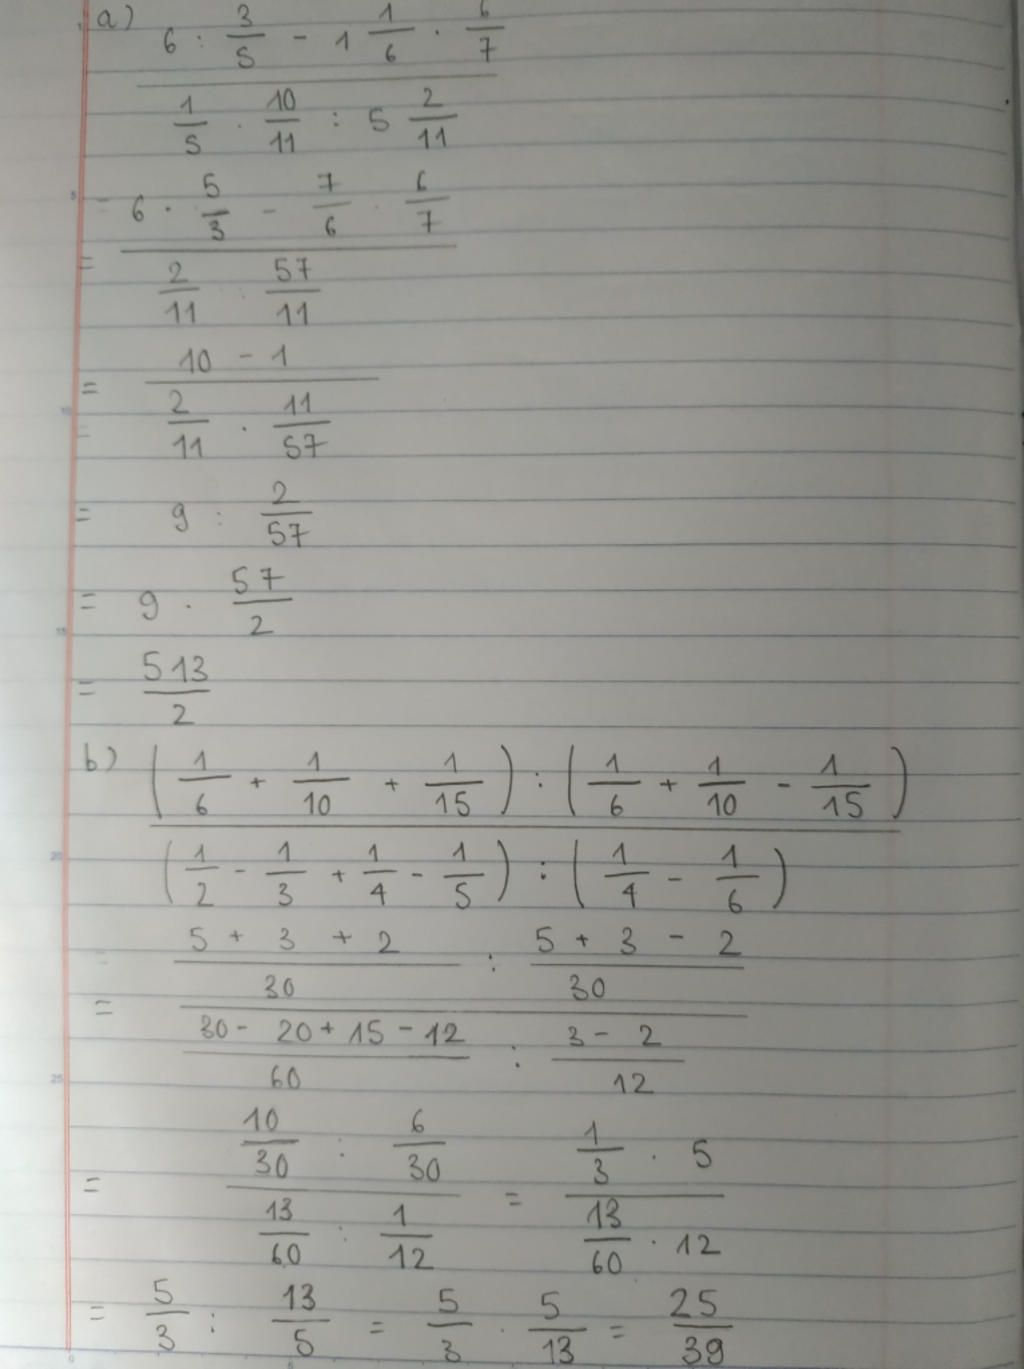 a) 6 : 3/5 - 1 1/6 · 6/7
1/5 · 10/11 : 5 2/11
= 6 · 5/3 - 7/6 · 6/7
2/11 : 57/11
= 10 - 1
2/11 · 11/57
= 9 : 2/57
= 9 · 57/2
= 513/2
b) (1/6 + 1/10 + 1/15) : (1/6 + 1/10 - 1/15)
(1/2 - 1/3 + 1/4 - 1/5) : (1/4 - 1/6)
= 5 + 3 + 2/30 : 5 + 3 - 2/30
30 - 20 + 15 - 12/60 : 3 - 2/12
= 10/30 : 6/30 = 1/3 · 5
13/60 : 1/12 13/60 · 12
= 5/3 : 13/5 = 5/3 · 5/13 = 25/39